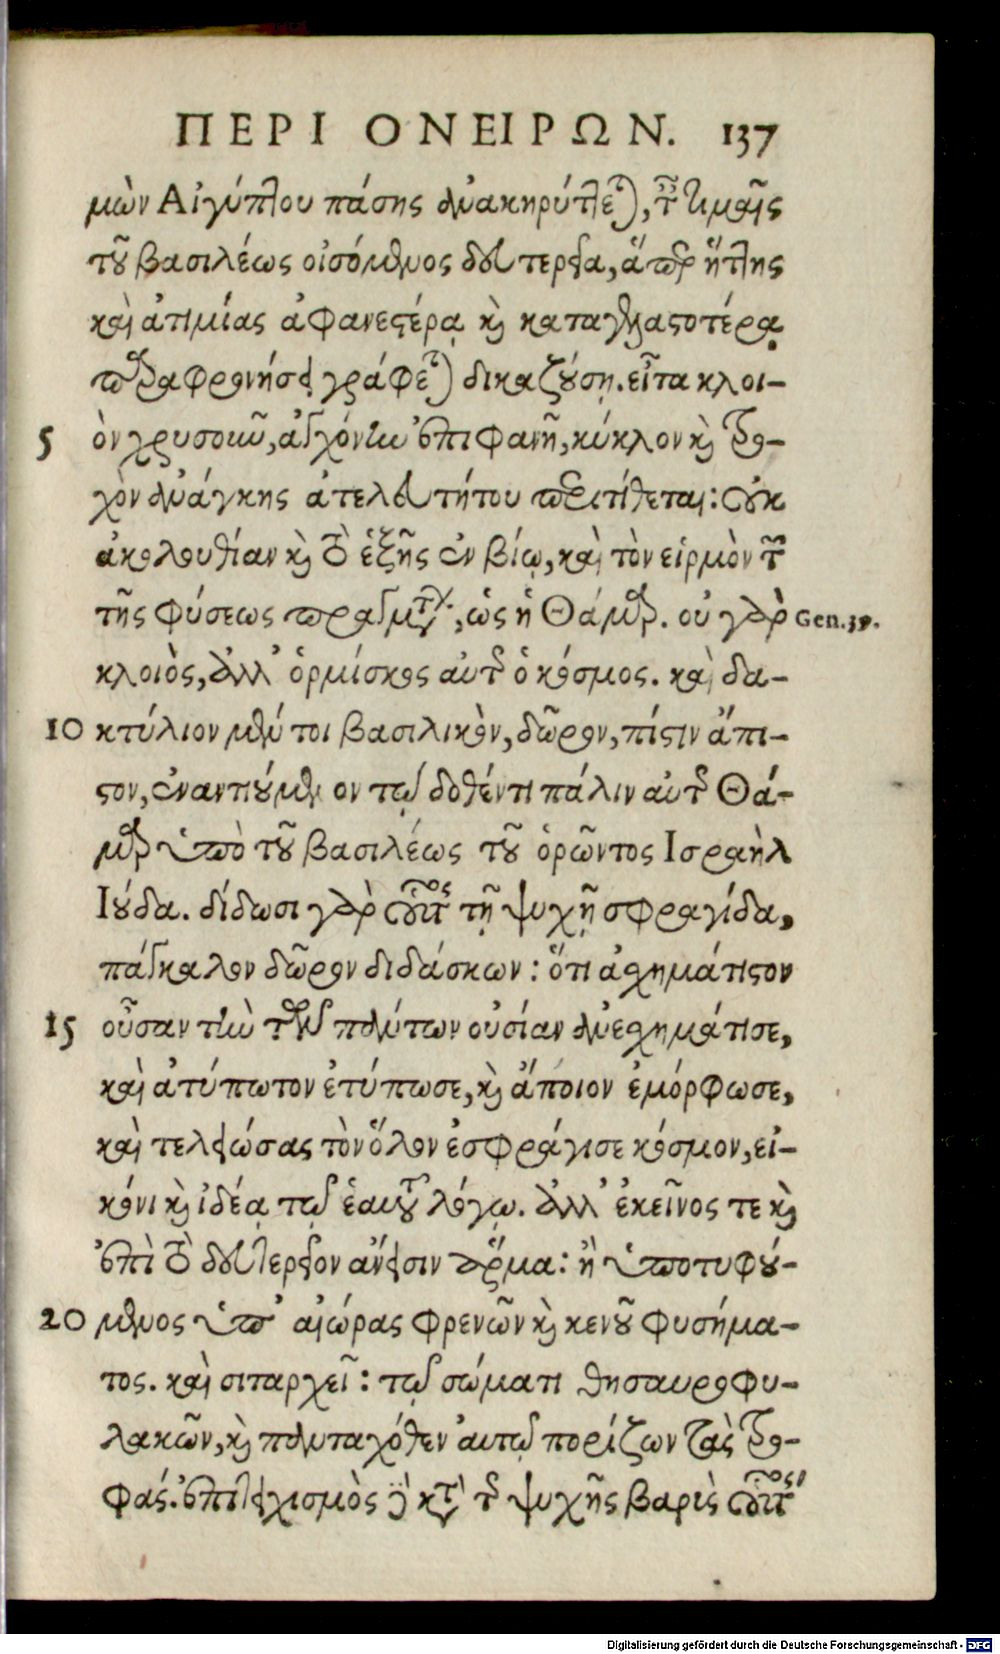 ΠΕΡΙ ΟΝΕΙΡΩΝ. 137
μὼν Αἰγύπτου πάσης ἀνακηρύττεται, τῆς τιμαῖς
τοῦ βασιλέως οἰσόμενος δευτερεῖα, ἅπερ ἥττης
καὶ ἀτιμίας ἀφανεστέρᾳ καὶ καταγελαστοτέρᾳ
παραφρονήσει γράφεται δικαζούσῃ. εἶτα κλοι-
5 ὸν χρυσοῦν, ἀγχόνην ἐπιφανῆ, κύκλον καὶ τρο-
χὸν ἀνάγκης ἀτελευτήτου περιτίθεται: οὐκ
ἀκολουθίαν καὶ τὸ ἑξῆς ἐν βίῳ, καὶ τὸν εἱρμὸν τῶν
τῆς φύσεως πραγμάτων, ὡς ἡ Θάμαρ. οὐ γὰρ Gen. 39.
κλοιὸς, ἀλλ' ὁρμίσκος αὐτῆς ὁ κόσμος. καὶ δα-
10 κτύλιον μέντοι βασιλικὸν, δῶρον, πίστιν ἄπι-
στον, ἐναντιούμενον τῷ δοθέντι πάλιν αὐτῇ Θά-
μαρ ὑπὸ τοῦ βασιλέως τοῦ ὁρῶντος Ισραὴλ
Ιούδα. δίδωσι γὰρ οὗτος τῇ ψυχῇ σφραγίδα,
πάγκαλον δῶρον διδάσκων: ὅτι ἀσχημάτιστον
15 οὖσαν τὴν τῶν πάντων οὐσίαν ἀνεσχημάτισε,
καὶ ἀτύπωτον ἐτύπωσε, καὶ ἄποιον ἐμόρφωσε,
καὶ τελειώσας τὸν ὅλον ἐσφράγισε κόσμον, εἰ-
κόνι καὶ ἰδέᾳ τῷ ἑαυτοῦ λόγῳ. ἀλλ' ἐκεῖνος τε καὶ
ἐπὶ τὸ δευτερεῖον ἄνεισιν ἅρμα: ἢ ὑποτυφού-
20 μενος ὑπ' αἰώρας φρενῶν καὶ κενοῦ φυσήμα-
τος. καὶ σιταρχεῖ: τῷ σώματι θησαυροφυ-
λακῶν, καὶ πανταχόθεν αὐτῷ πορίζων τὰς τρο-
φάς. ἐπιτειχισμὸς δὲ κατὰ τῆς ψυχῆς βαρὺς οὗτος
Digitalisierung gefördert durch die Deutsche Forschungsgemeinschaft - DFG